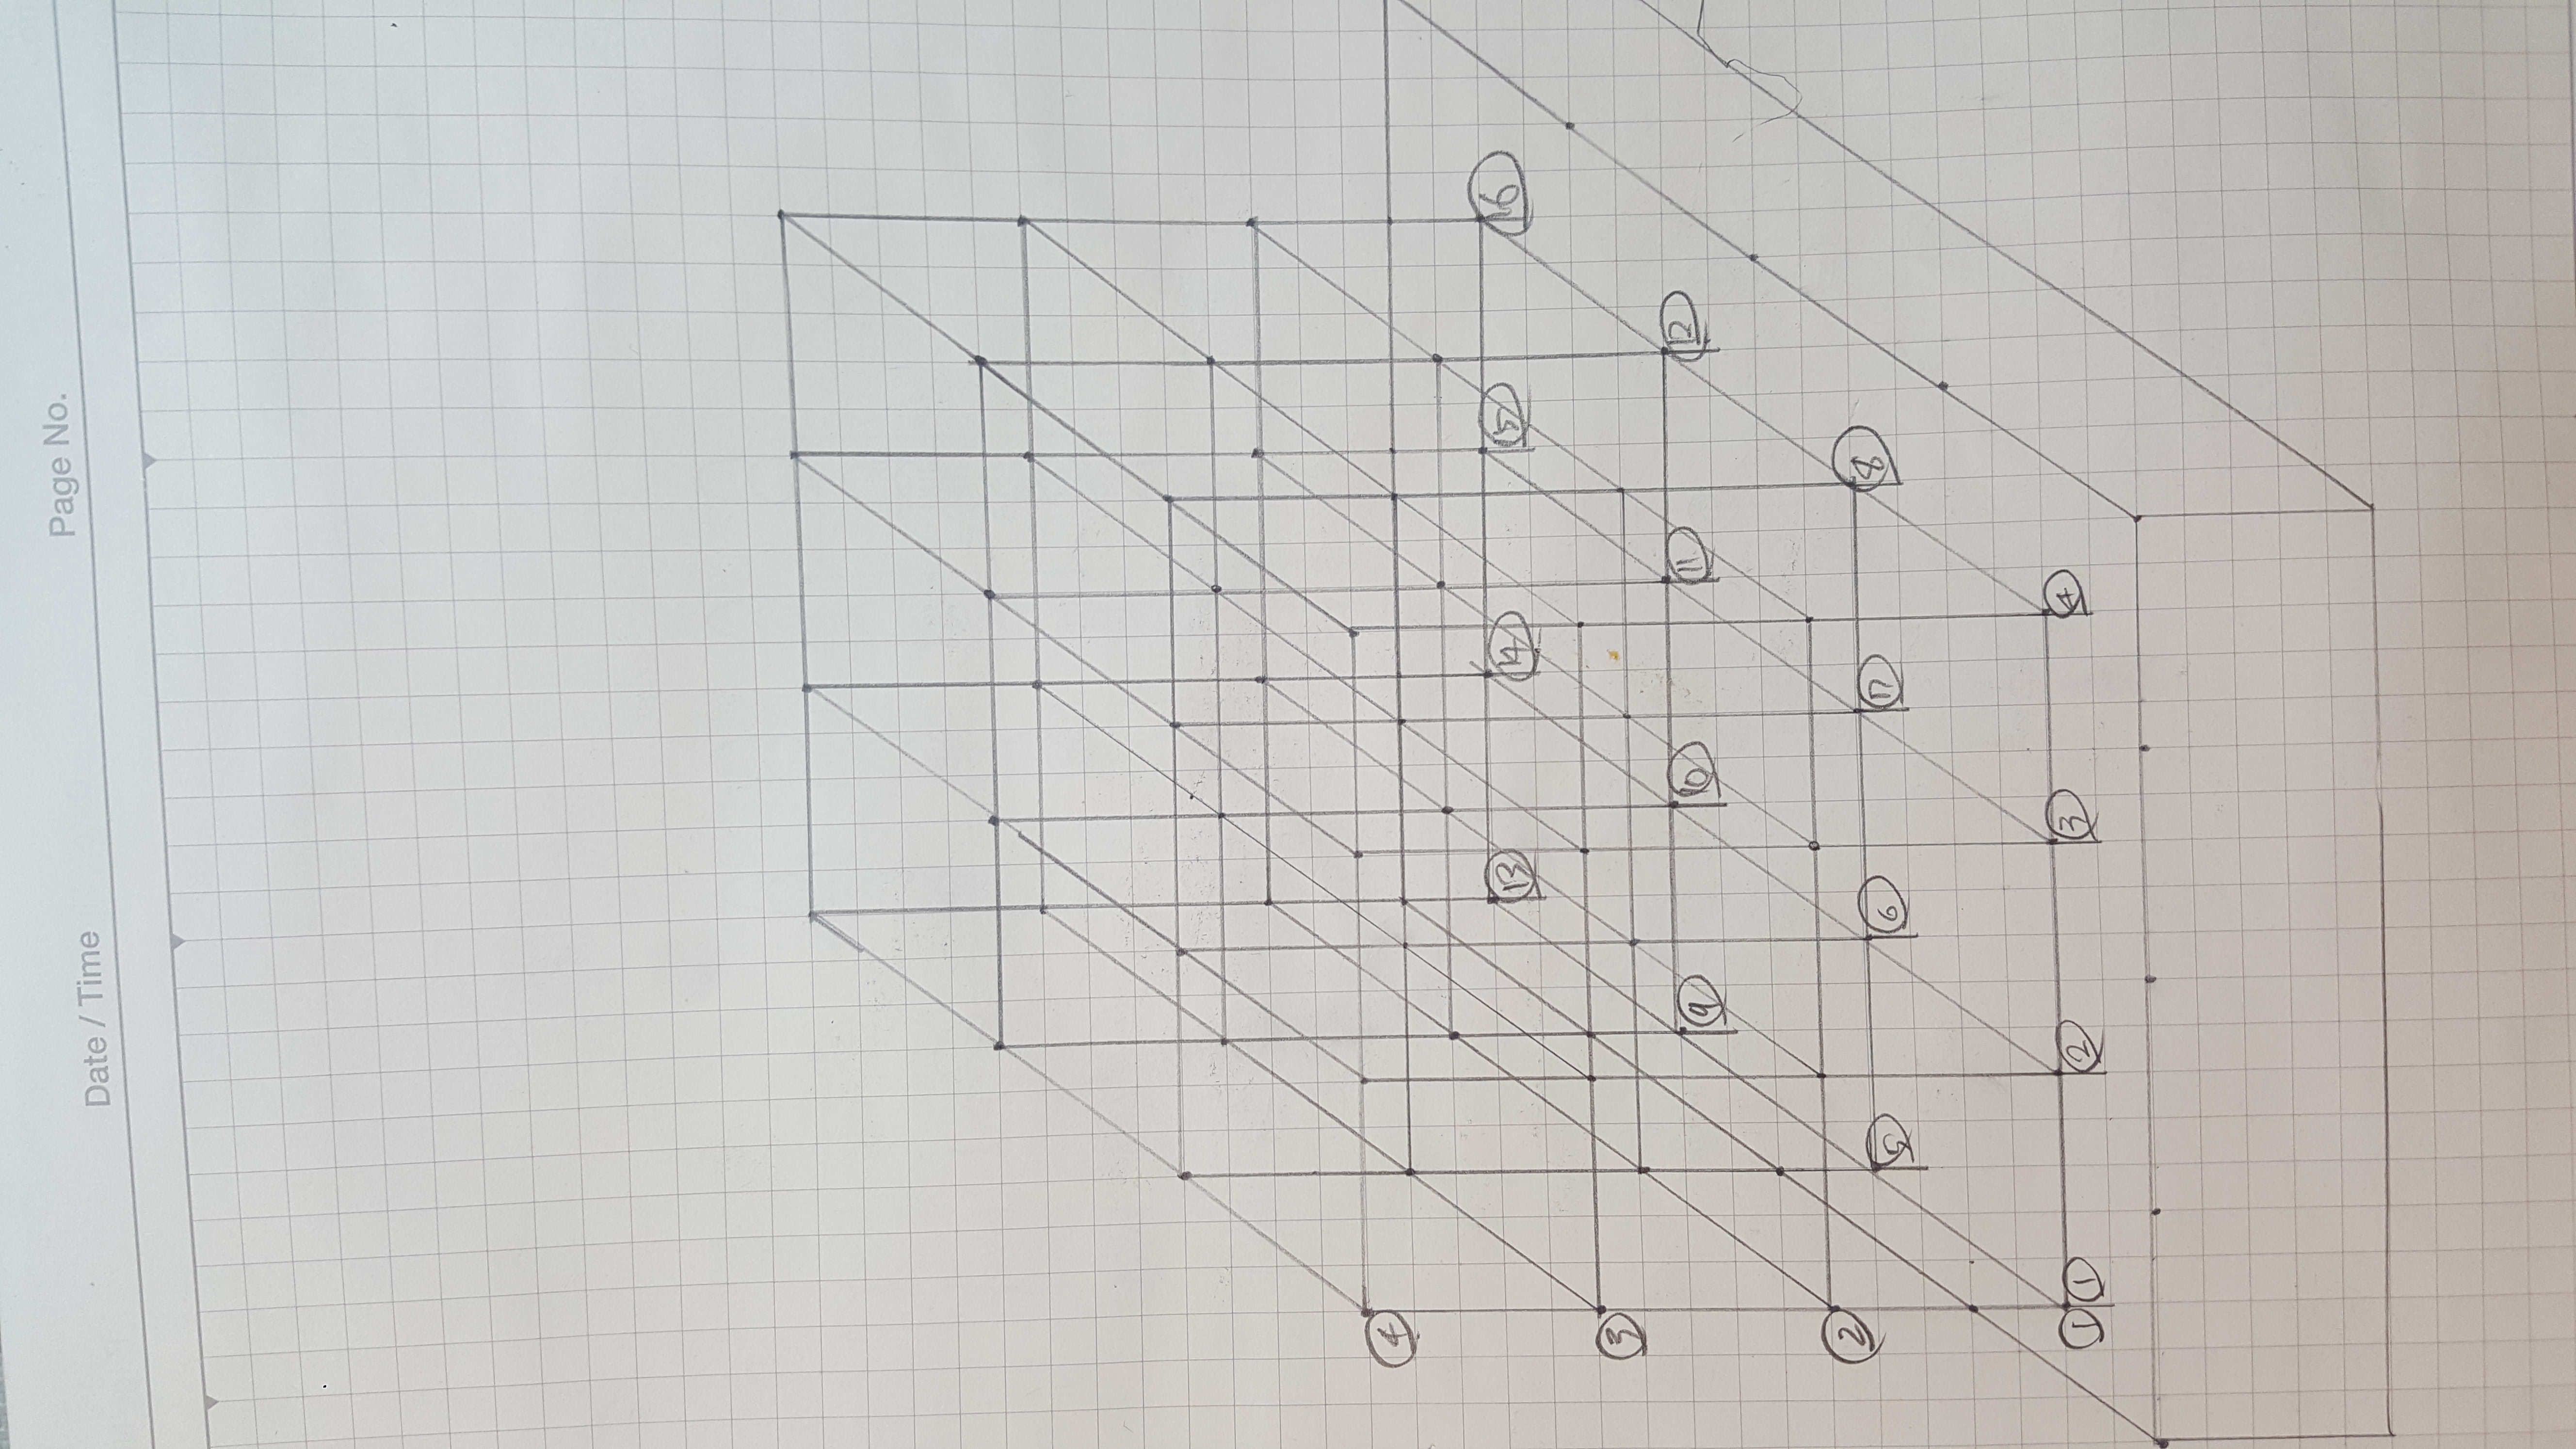 Date / Time Page No.
④
⑬ ⑭ ⑮ ⑯
③
⑨ ⑩ ⑪ ⑫
②
⑤ ⑥ ⑦ ⑧
① ① ② ③ ④